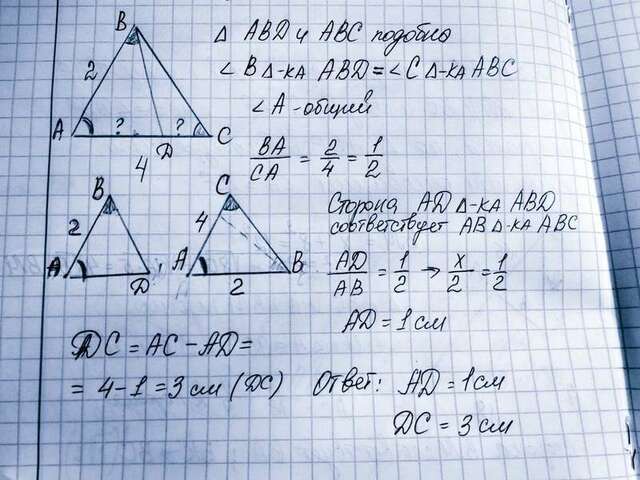 B
2
A
?
?
C
D
4
Δ ABD и ABC подобно
∠ B Δ-ка ABD = ∠ C Δ-ка ABC
∠ A - общий
BA/CA = 2/4 = 1/2
B
2
A
D
C
4
A
B
2
Сторона AD Δ-ка ABD
соответствует AB Δ-ка ABC
AD/AB = 1/2 → x/2 = 1/2
AD = 1 см
DC = AC - AD =
= 4 - 1 = 3 см (DC)
Ответ: AD = 1 см
DC = 3 см